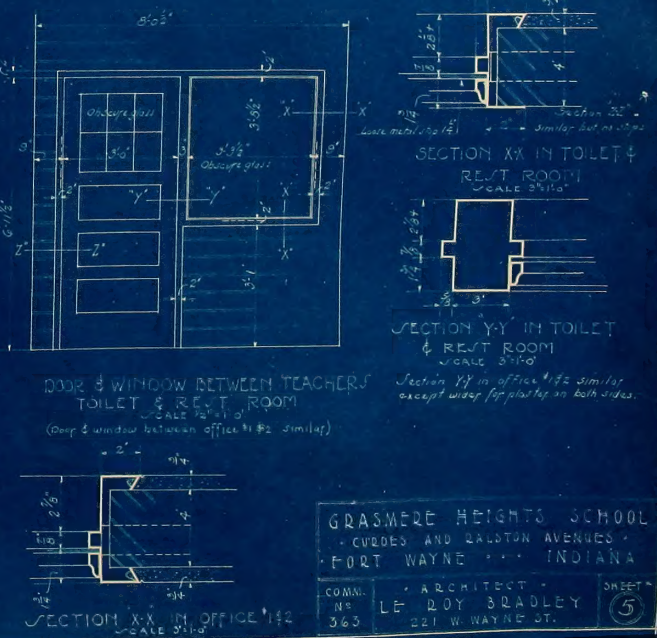 8'-0½"
2'
Obscure glass
3'-5½"
"X" "X"
9'
3'-0"
3'
3'-9½"
Obscure glass
9'
2'
"Y" "Y"
2'
"X"
"Z"
6'-11½"
2'
3'-1"
"X"
DOOR & WINDOW BETWEEN TEACHERS
TOILET & REST ROOM
(Door & window between office #1 #2 similar)
4"
Loose metal stop
2"
Section "ZZ"
similar but no stops
SECTION X-X IN TOILET &
REST ROOM
SCALE 3"=1'-0"
3"
SECTION "Y-Y" IN TOILET
& REST ROOM
SCALE 3"=1'-0"
Section Y-Y in office #1 #2 similar
except wider for plaster on both sides.
2"
¾"
2⅞"
4"
⅞"
¾"
¾"
SECTION X-X IN OFFICE #1 #2
SCALE 3"=1'-0"
GRASMERE HEIGHTS SCHOOL
CURDES AND RALSTON AVENUES
FORT WAYNE INDIANA
COMM.
Nº
363
ARCHITECT
LE ROY BRADLEY
221 W. WAYNE ST.
SHEET #
5